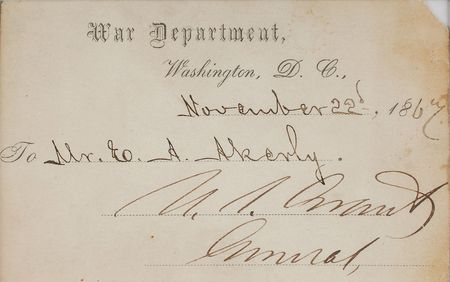 War Department,
Washington, D. C.,
November 22d, 1867
To Mr. E. A. Akerly.
U. S. Grant
General,